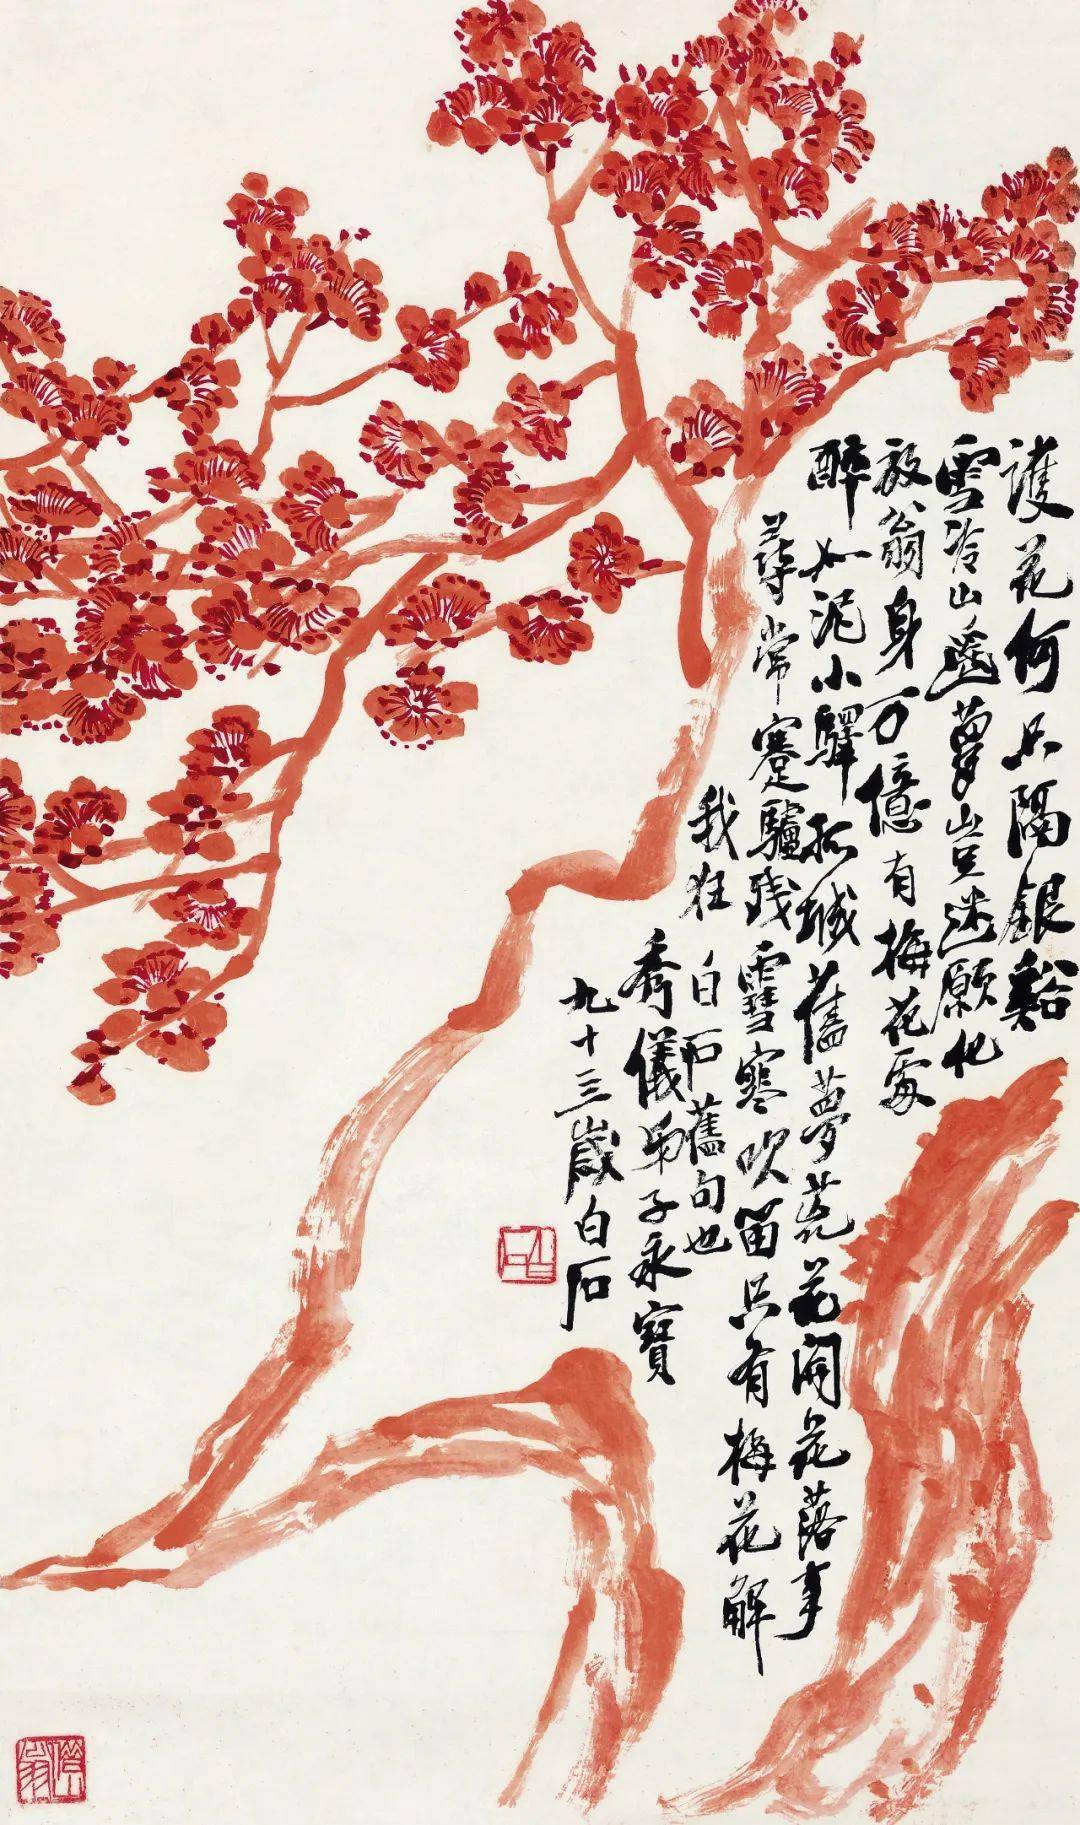 護花何隔銀谿
雪冷山遙夢豈迷願化
放翁身万億有梅花處
醉如泥小驛孤城舊夢荒花開花落事
尋常蹇驢殘雪寒吹笛只有梅花解
我狂白石舊句也
秀儀弟子永寶
九十三歲白石
白石
借山翁